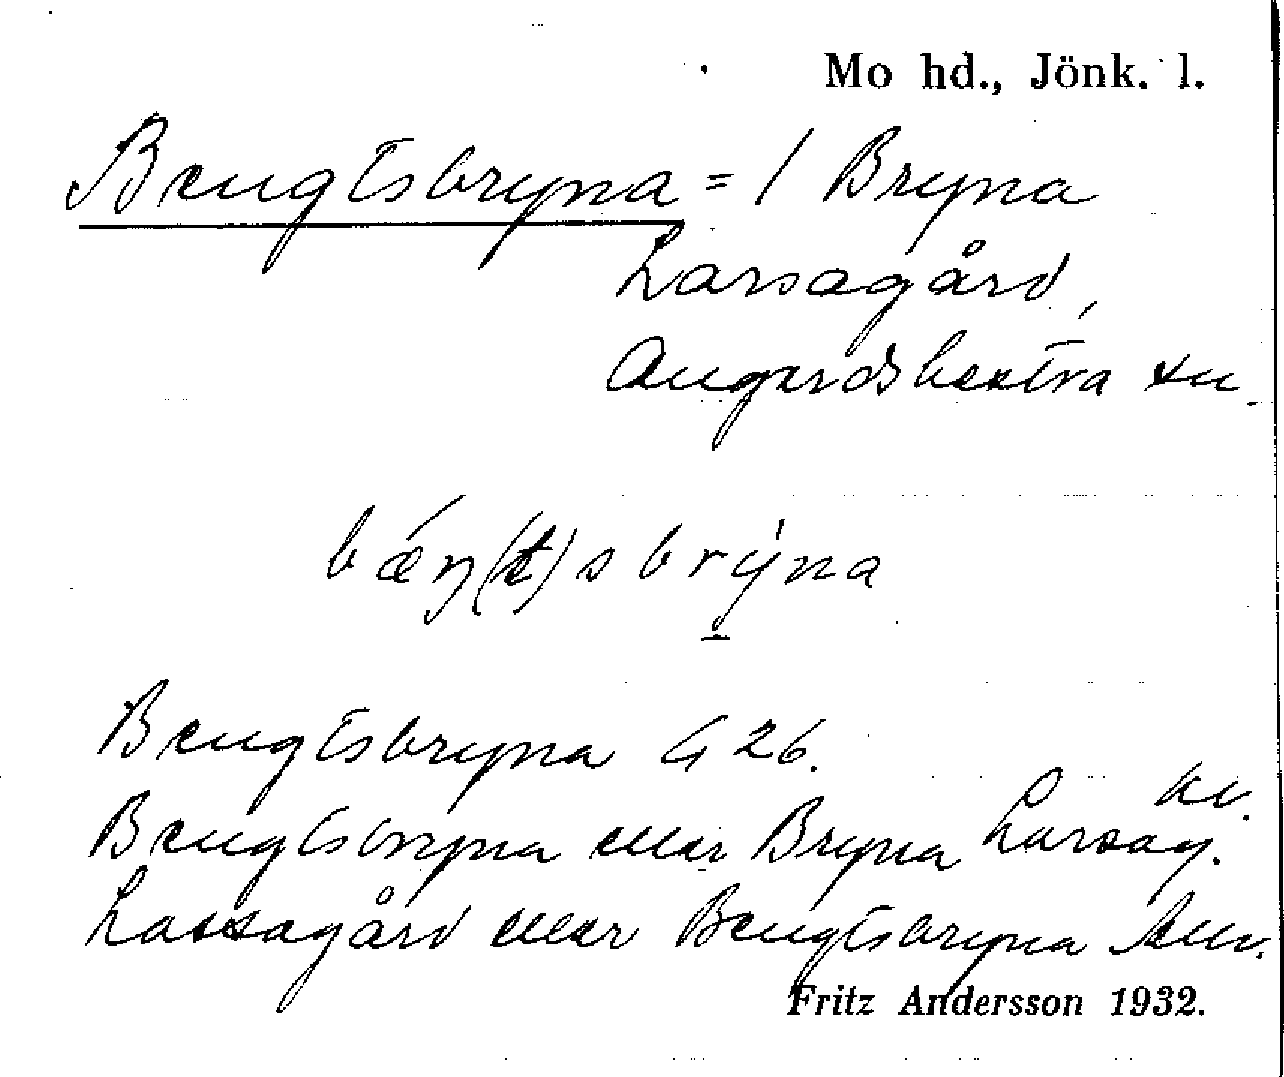 Mo hd., Jönk. l.
Bengtsbryna = 1 Bryna
Larsagård,
Angerdshestra sn.
bǽŋ(t)sbrýna
Bengtsbryna G 26.
Bengtsbryna eller Bryna Larsag.
Lassagård eller Bengtsbryna
Fritz Andersson 1932.